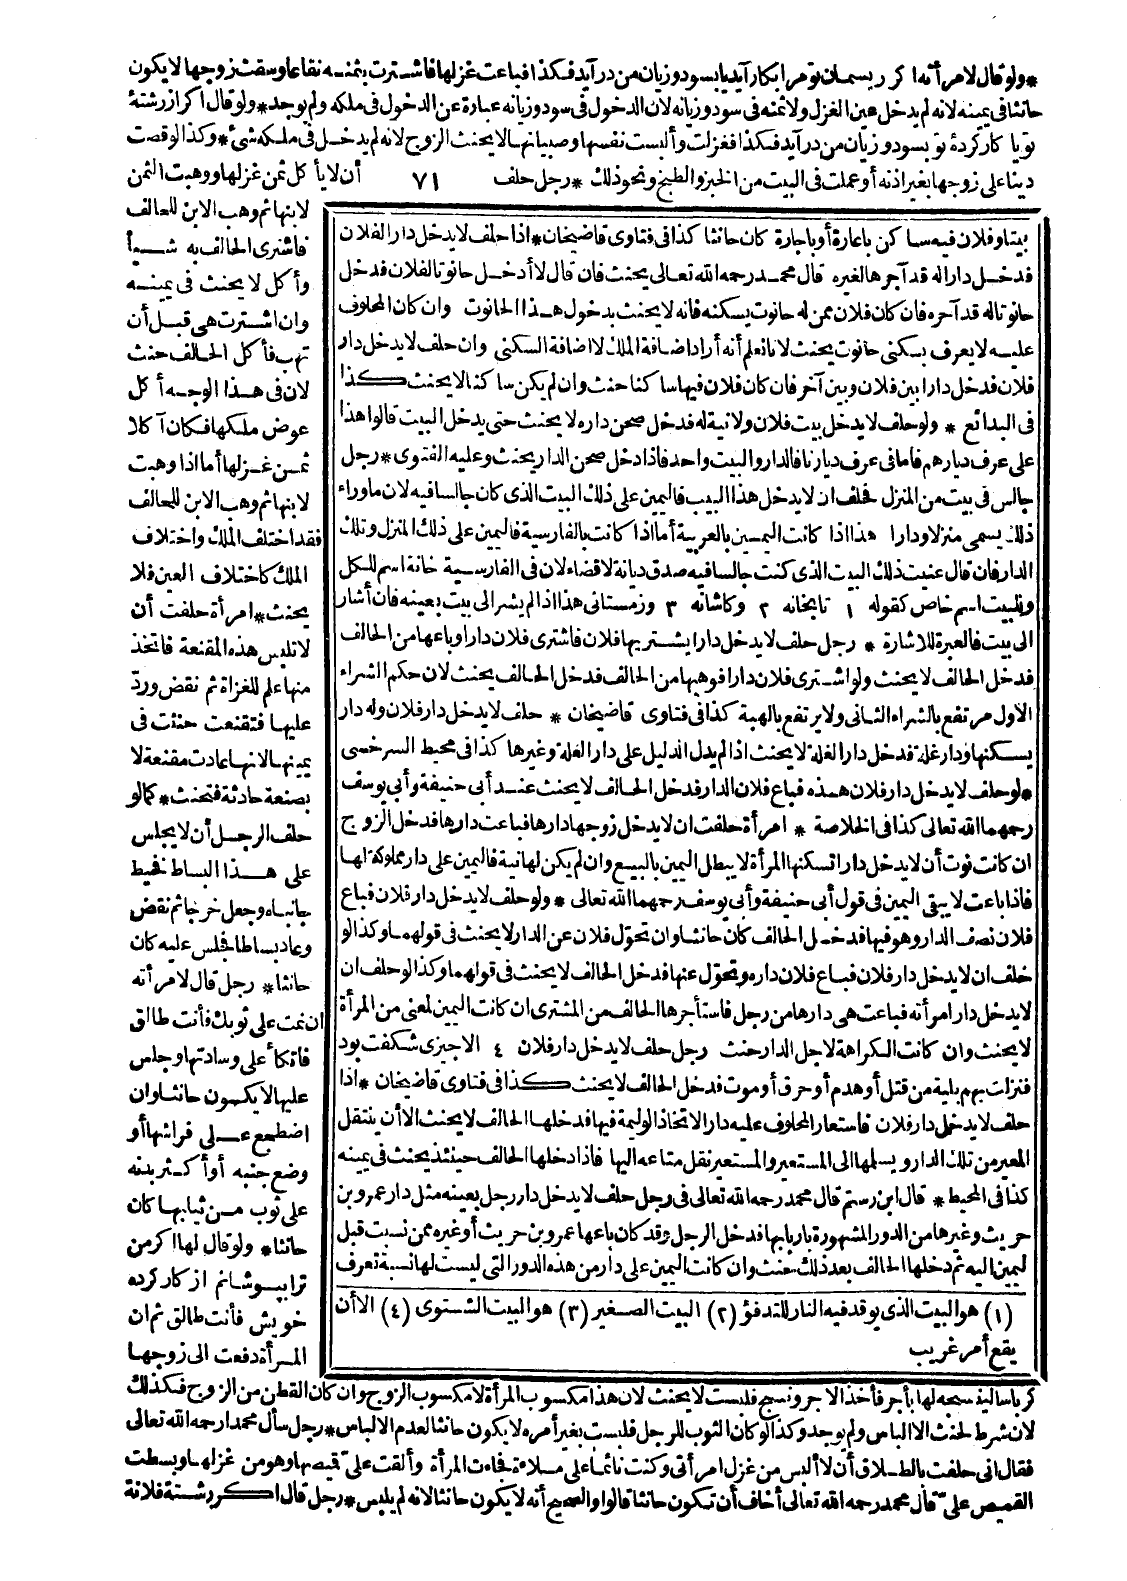 *ولو قال لامرأته اكر ريسمان تو مرا بكار آيد يا بسود وزيان من در آيد فكذا فباعت غزلها فاشترت بثمنه نقاعا وسقت زوجها لا يكون
حانثا فى يمينه لانه لم يدخل عين الغزل ولا ثمنه فى سود وزيانه لان الدخول فى سود وزيانه عبارة عن الدخول فى ملكه ولم يوجد*ولو قال اكر از رشتهٔ
تو يا كار كردهٔ تو بسود وزيان من در آيد فكذا فغزلت وألبست نفسها وصبيانهما لا يحنث الزوج لانه لم يدخل فى ملكه شئ*وكذا لو قضت
دينا على زوجها بغير اذنه أو عملت فى البيت من الخبز والطبخ ونحو ذلك *رجل حلف
٧١
أن لا يأكل ثمن غزلها ووهبت الثمن
لابنها ثم وهب الابن للحالف
فاشترى الحالف به شيأ
وأكل لا يحنث فى يمينه
وان اشترت هى قبل أن
تهب فأكل الحالف حنث
لان فى هذا الوجه أكل
عوض ملكها فكان آكلا
ثمن غزلها أما اذا وهبت
لابنها ثم وهب الابن للحالف
فقد اختلف الملك واختلاف
الملك كاختلاف العين فلا
يحنث*امرأة حلفت أن
لا تلبس هذه المقنعة فاتخذ
منها علم للغزاة ثم نقض وردّ
عليها فتقنعت حنثت فى
يمينها لانها عادت مقنعة لا
بصنعة حادثة فتحنث*كما لو
حلف الرجل أن لا يجلس
على هذا البساط فخيط
جانباه وجعل خرجا ثم نقض
وعاد بساطا فجلس عليه كان
حانثا* رجل قال لامرأته
ان نمت على ثوبك فأنت طالق
فاتكأ على وسادتها وجلس
عليها لا يكون حانثا وان
اضطجع على فراشها أو
وضع جنبه أو أكثر بدنه
على ثوب من ثيابها كان
حانثا* ولو قال لها اكر من
ترا بپوشانم از كار كرده
خويش فأنت طالق ثم ان
المرأة دفعت الى زوجها
بيتا وفلان فيه ساكن باعارة أو باجارة كان حانثا كذا فى فتاوى قاضيخان*اذا حلف لا يدخل دار الفلان
فدخل دارا له قد آجرها لغيره قال محمد رحمه الله تعالى يحنث فان قال لا أدخل حانوتا لفلان فدخل
حانوتا له قد آجره فان كان فلان ممن له حانوت يسكنه فانه لا يحنث بدخول هذا الحانوت وان كان المحلوف
عليه لا يعرف بسكنى حانوت يحنث لانا نعلم أنه أراد اضافة الملك لا اضافة السكنى وان حلف لا يدخل دار
فلان فدخل دارا بين فلان وبين آخر فان كان فلان فيها ساكنا حنث وان لم يكن ساكنا لا يحنث كذا
فى البدائع * ولو حلف لا يدخل بيت فلان ولا نية له فدخل صحن داره لا يحنث حتى يدخل البيت قالوا هذا
على عرف ديارهم فاما فى عرف ديارنا فالدار والبيت واحد فاذا دخل صحن الدار يحنث وعليه الفتوى*رجل
جالس فى بيت من المنزل فحلف ان لا يدخل هذا البيت فاليمين على ذلك البيت الذى كان جالسا فيه لان ما وراء
ذلك يسمى منزلا ودارا هذا اذا كانت اليمين بالعربية أما اذا كانت بالفارسية فاليمين على ذلك المنزل وتلك
الدار فان قال عنيت ذلك البيت الذى كنت جالسا فيه صدق ديانة لا قضاء لان فى الفارسية خانة اسم للكل
وللبيت اسم خاص كقوله ١ تابخانه ٢ وكاشانه ٣ وزمستانى هذا اذا لم يشر الى بيت بعينه فان أشار
الى بيت فالعبرة للاشارة * رجل حلف لا يدخل دارا يشتريها فلان فاشترى فلان دارا وباعها من الحالف
فدخل الحالف لا يحنث ولو اشترى فلان دارا فوهبها من الحالف فدخل الحالف يحنث لان حكم الشراء
الاول مرتفع بالشراء الثانى ولا يرتفع بالهبة كذا فى فتاوى قاضيخان * حلف لا يدخل دار فلان وله دار
يسكنها ودار غلة فدخل دار الغلة لا يحنث اذا لم يدل الدليل على دار الغلة وغيرها كذا فى محيط السرخسى
*لو حلف لا يدخل دار فلان هذه فباع فلان الدار فدخل الحالف لا يحنث عند أبى حنيفة وأبى يوسف
رحمهما الله تعالى كذا فى الخلاصة * امرأة حلفت ان لا يدخل زوجها دارها فباعت دارها فدخل الزوج
ان كانت نوت أن لا يدخل دارا تسكنها المرأة لا يبطل اليمين بالبيع وان لم يكن لها نية فاليمين على دار مملوكة لها
فاذا باعت لا يبقى اليمين فى قول أبى حنيفة وأبى يوسف رحمهما الله تعالى * ولو حلف لا يدخل دار فلان فباع
فلان نصف الدار وهو فيها فدخل الحالف كان حانثا وان تحوّل فلان عن الدار لا يحنث فى قولهما وكذا لو
حلف ان لا يدخل دار فلان فباع فلان داره وتحوّل عنها فدخل الحالف لا يحنث فى قولهما وكذا لو حلف ان
لا يدخل دار امرأته فباعت هى دارها من رجل فاستأجرها الحالف من المشترى ان كانت اليمين لمعنى من المرأة
لا يحنث وان كانت الكراهة لاجل الدار حنث رجل حلف لا يدخل دار فلان ٤ الا چيزى شكفت بود
فنزلت بهم بلية من قتل أو هدم أو حرق أو موت فدخل الحالف لا يحنث كذا فى فتاوى قاضيخان *اذا
حلف لا يدخل دار فلان فاستعار المحلوف عليه دارا لاتخاذ الوليمة فيها فدخلها الحالف لا يحنث الا أن ينتقل
المعير من تلك الدار ويسلمها الى المستعير والمستعير نقل متاعه اليها فاذا دخلها الحالف حينئذ يحنث فى يمينه
كذا فى المحيط * قال ابن رستم قال محمد رحمه الله تعالى فى رجل حلف لا يدخل دار رجل بعينه مثل دار عمرو بن
حريث وغيرها من الدور المشهورة بأربابها فدخل الرجل وقد كان باعها عمرو بن حريث أو غيره ممن نسبت قبل
ليمين اليه ثم دخلها الحالف بعد ذلك حنث وان كانت اليمين على دار من هذه الدور التى ليست لها نسبة تعرف
(١) هو البيت الذى يوقد فيه النار للتدفؤ (٢) البيت الصغير (٣) هو البيت الشتوى (٤) الا أن
يقع أمر غريب
كرباسا لينسجه لها بأجر فأخذ الاجر ونسج فلبست لا يحنث لان هذا مكسوب المرأة لا مكسوب الزوج وان كان القطن من الزوج فكذلك
لان شرط الحنث الالباس ولم يوجد وكذا لو كان الثوب للرجل فلبست بغير أمره لا يكون حانثا لعدم الالباس*رجل سأل محمدا رحمه الله تعالى
فقال انى حلفت بالطلاق أن لا ألبس من غزل امرأتى وكنت نائما على ملاءة فجاءت المرأة وألقت علىّ قميصها وهو من غزلها وبسطت
القميص علىّ قال محمد رحمه الله تعالى أخاف أن تكون حانثا قالوا والصحيح أنه لا يكون حانثا لانه لم يلبس*رجل قال اكر رشتة فلانة